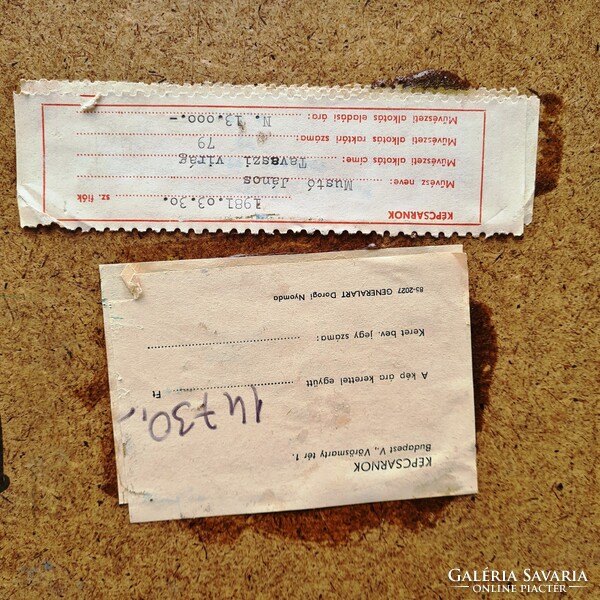 KÉPCSARNOK
1981.03.30. sz. fiók
Művész neve: Mustó János
Művészeti alkotás címe: Tavaszi virág
Művészeti alkotás raktári száma: 79
Művészeti alkotás eladási ára: N. 13.000.-
KÉPCSARNOK
Budapest V., Vörösmarty tér 1.
14730,-
A kép ára kerettel együtt Ft
Keret bev. jegy száma:
83-2027 GENERALART Dorogi Nyomda
GALÉRIA SAVARIA
ONLINE PIACTÉR